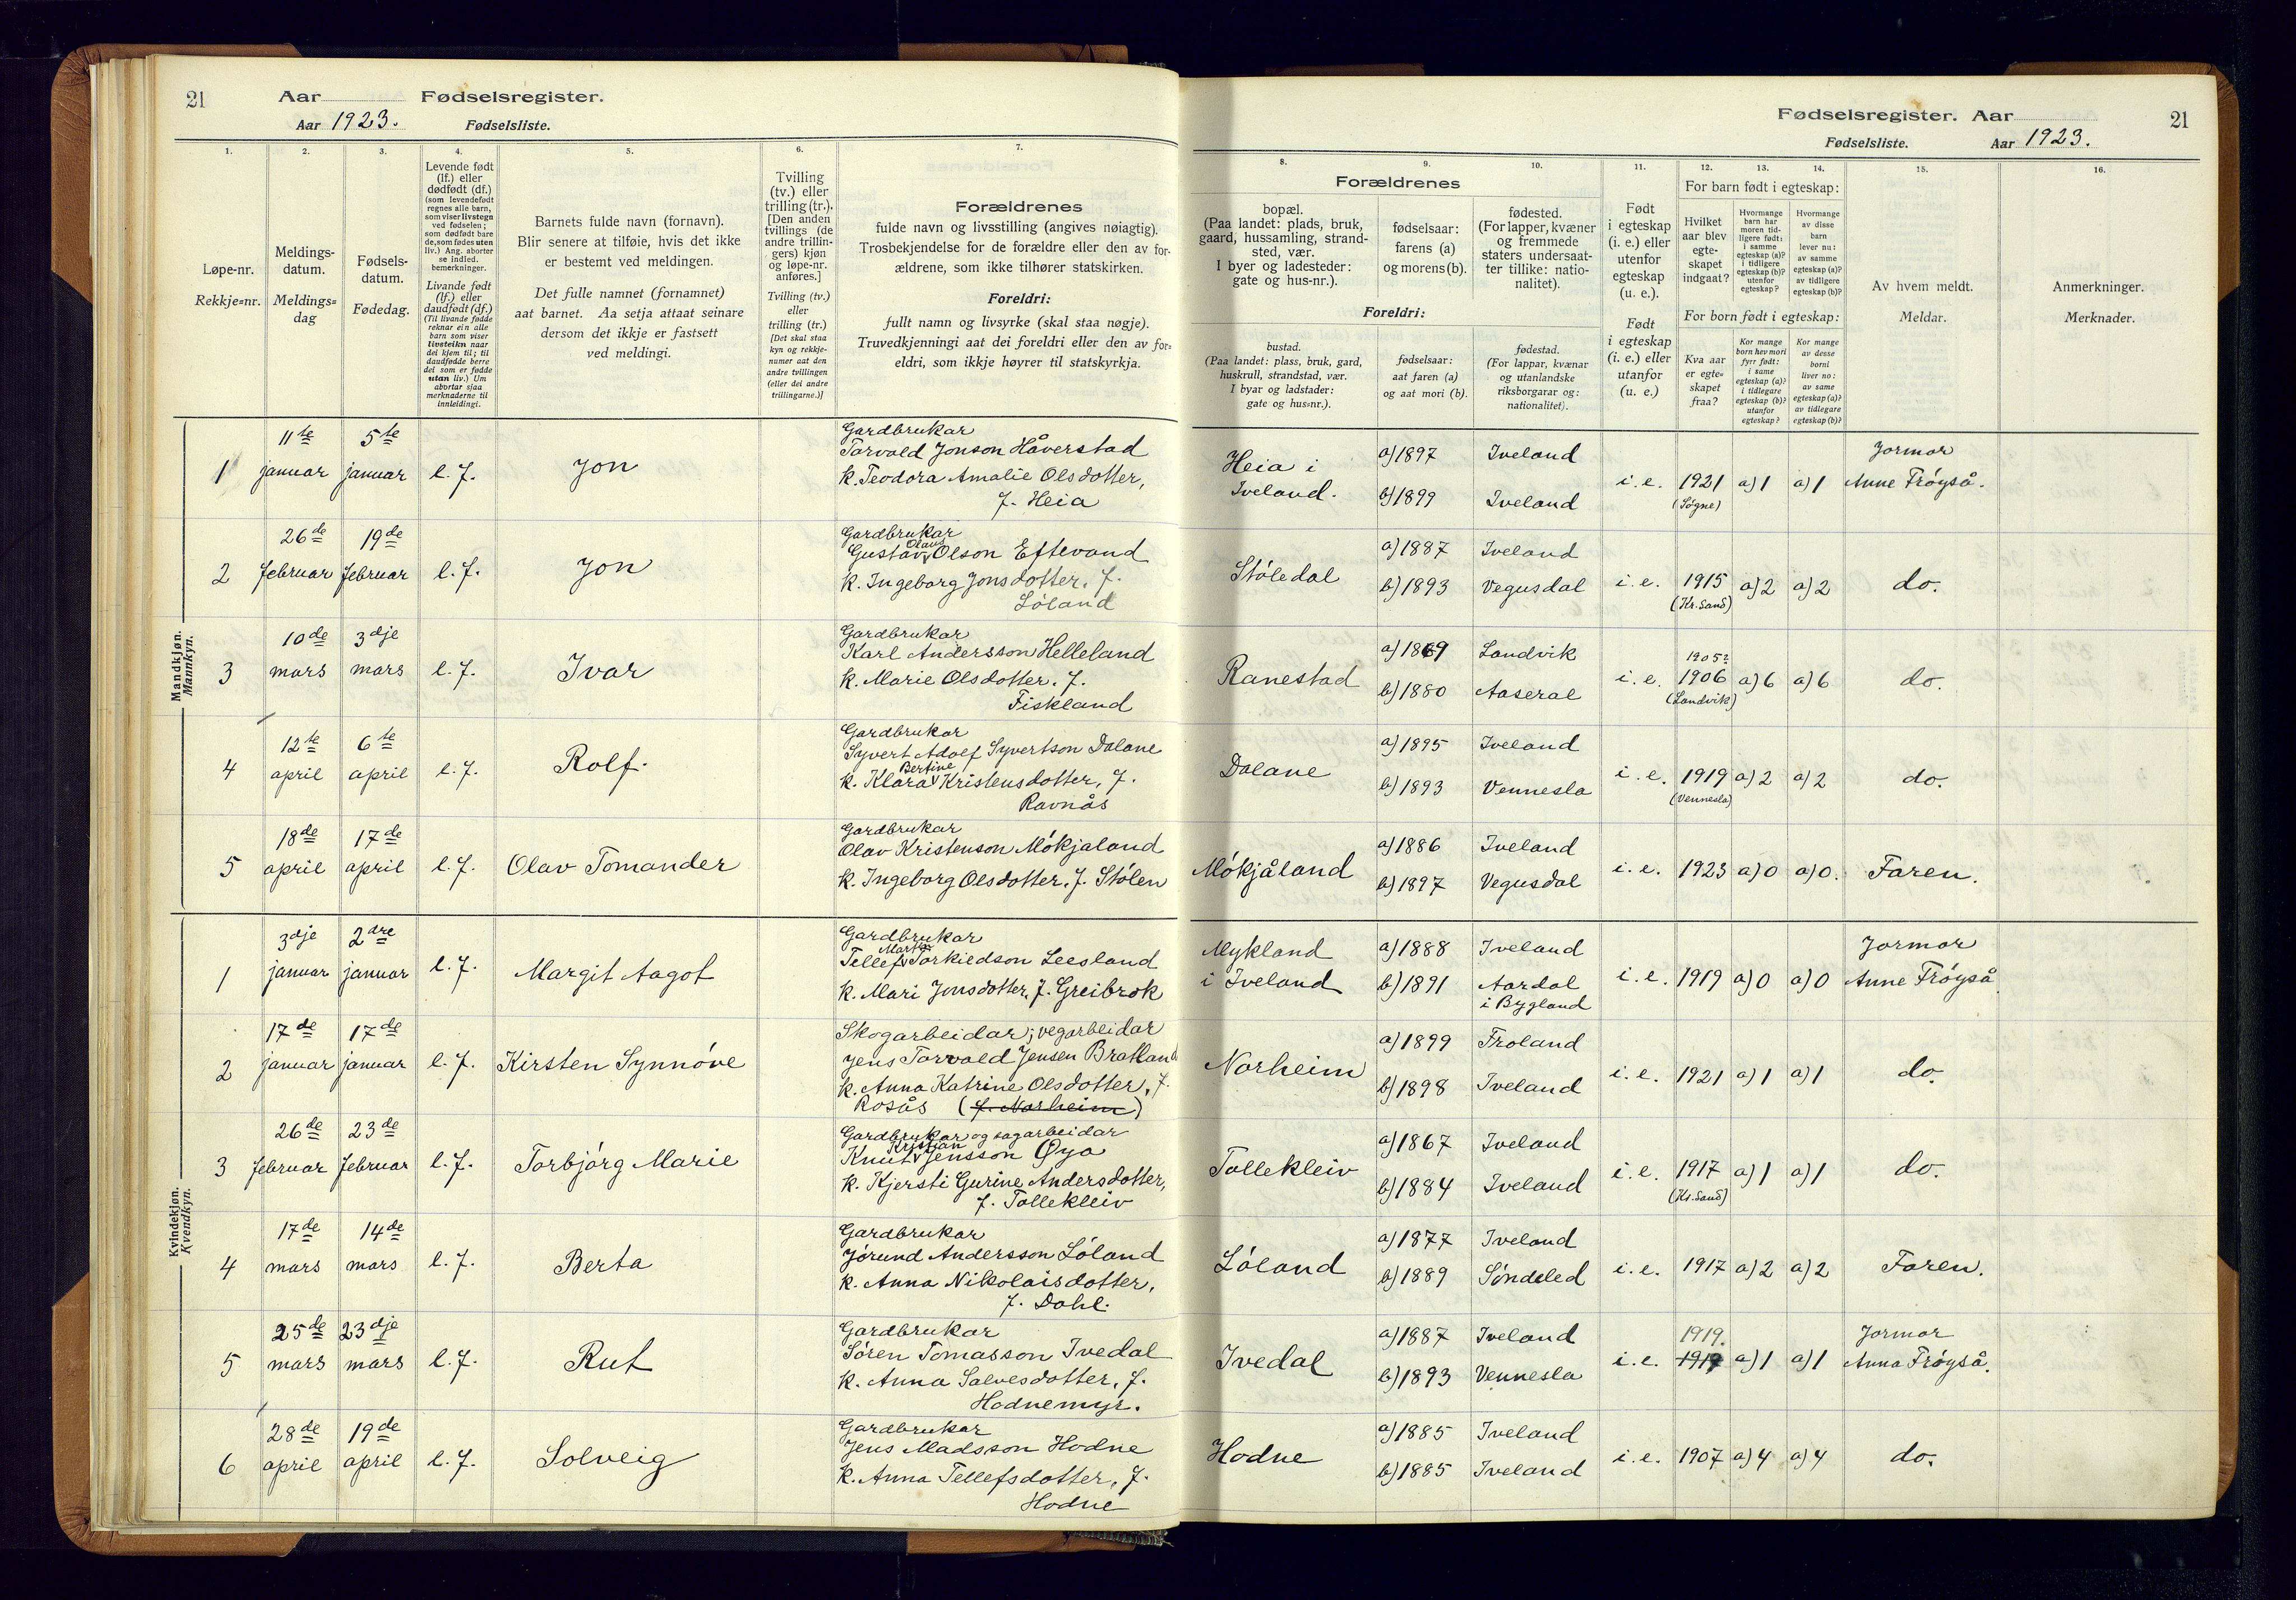 21
Aar Fødselsregister.
Aar 1923. Fødselsliste.
1.
2.
3.
4.
5.
6.
7.
Løpe-nr.
Rekkje=nr.
Meldings-
datum.
Meldings=
dag
Fødsels-
datum.
Fødedag.
Levende født
(lf.) eller
dødfødt (df.)
(som levendefødt
regnes alle barn,
som viser livstegn
ved fødselen;
som dødfødt bare
de, som fødes uten
liv.) Ang. aborter
se indled.
bemerkninger.
Livande født
(lf.) eller
daudfødt (df.)
(Til livande fødde
reknar ein alle
barn som viser
livsteikn naar
dei kjem til; til
daudfødde berre
dei som er fødde
utan liv.) Um
abortar sjaa
merknaderne til
innleidingi.
Barnets fulde navn (fornavn).
Blir senere at tilføie, hvis det ikke
er bestemt ved meldingen.
Det fulle namnet (fornamnet)
aat barnet. Aa setja attaat seinare
dersom det ikkje er fastsett
ved meldingi.
Tvilling
(tv.) eller
trilling (tr.).
[Den anden
tvillings (de
andre trillin-
gers) kjøn
og løpe-nr.
anføres.]
Tvilling (tv.)
eller
trilling (tr.)
[Det skal staa
kyn og rekkje-
numer aat den
andre tvillingen
(eller dei andre
trillingarne.)]
Forældrenes
fulde navn og livsstilling (angives nøiagtig).
Trosbekjendelse for de forældre eller den av for-
ældrene, som ikke tilhører statskirken.
Foreldri:
fullt namn og livsyrke (skal staa nøgje).
Truvedkjenningi aat dei foreldri eller den av for=
eldri, som ikkje høyrer til statskyrkja.
Mandkjøn.
Mannkyn.
1
11te
januar
5te
januar
l. f.
Jon
Gardbrukar
Torvald Jonson Håverstad
k. Teodora Amalie Olsdotter,
f. Heia
2
26de
februar
19de
februar
l. f.
Jon
Gardbrukar
Olaus
Gustav Olson Eftevand
k. Ingeborg Jonsdotter, f.
Löland
3
10de
mars
3dje
mars
l. f.
Ivar
Gardbrukar
Karl Andersson Helleland
k. Marie Olsdotter, f.
Fiskland
4
12te
april
6te
april
l. f.
Rolf.
Gardbrukar
Syvert Adolf Syvertson Dalane
Bertine
k. Klara Kristensdotter, f.
Ravnås
5
18de
april
17de
april
l. f.
Olav Tomander
Gardbrukar
Olav Kristenson Mókjaland
k. Ingeborg Olsdotter, f. Stólen
Kvindekjøn.
Kvendkyn.
1
3dje
januar
2dre
januar
l. f.
Margit Aagot
Gardbrukar
Tellef Torkiedson Leesland
k. Mari Jonsdotter, f. Greibrok
2
17de
januar
17de
januar
l. f.
Kirsten Synnóve
Skogarbeidar; vegarbeidar
Jens Torvald Jensen Bratland
k. Anna Katrine Olsdotter, f.
Rosås (f. Norheim)
3
26de
februar
23de
februar
l. f.
Torbjórg Marie
Gardbrukar og sagarbeidar
Kristian
Knut Jensson Øya
k. Kjersti Gurine Andersdotter,
f. Tollekleiv
4
17de
mars
14de
mars
l. f.
Berta
Gardbrukar
Jórund Andersson Lóland
k. Anna Nikolaisdotter,
f. Dahl.
5
25de
mars
23dje
mars
l. f.
Rut
Gardbrukar
Sóren Tomasson Ivedal
k. Anna Salvesdotter, f.
Hodnemyr.
6
28de
april
19de
april
l. f.
Solveig
Gardbrukar
Jens Madsson Hodne
k. Anna Tellefsdotter, f.
Hodne
Fødselsregister. Aar
21
Fødselsliste. Aar 1923.
8.
9.
10.
11.
12.
13.
14.
15.
16.
Forældrenes
bopæl.
(Paa landet: plads, bruk,
gaard, hussamling, strand-
sted, vær.
I byer og ladesteder:
gate og hus-nr.).
fødselsaar:
farens (a)
og morens (b).
fødested.
(For lapper, kvæner
og fremmede
staters undersaat-
ter tillike: natio-
nalitet).
Foreldri:
bustad.
(Paa landet: plass, bruk, gard,
huskrull, strandstad, vær.
I byar og ladstader:
gate og hus=nr.).
fødselsaar:
aat faren (a)
og aat mori (b).
fødestad.
(For lappar, kvænar
og utanlandske
riksborgarar og:
nationalitet).
Født
i egteskap
(i. e.) eller
utenfor
egteskap
(u. e.).
Født
i egteskap
(i. e.) eller
utanfor
(u. e.)
For barn født i egteskap:
Hvilket
aar blev
egte-
skapet
indgaat?
Hvormange
barn har
moren tid-
ligere født:
i samme
egteskap (a)?
i tidligere
egteskap (b)?
utenfor
egteskap?
Hvormange
av disse
barn
lever nu:
av samme
egteskap (a)?
av tidligere
egteskap (b)?
For born født i egteskap:
Kva aar
er egte=
skapet
fraa?
Kor mange
born hev mori
fyrr født:
i same
egteskap (a)?
i tidlegare
egteskap (b)?
utanfor
egteskap?
Kor mange
av desse
borni
liver no:
av same
egteskap (a)?
av tidlegare
egteskap (b)?
Av hvem meldt.
Meldar.
Anmerkninger.
Merknader.
Heia i
Iveland.
a) 1897 Iveland
b) 1899 Iveland
i. e. 1921 a) 1 a) 1
(Søgne)
Jormor
Anne Fróyså.
Stóledal
a) 1887 Iveland
b) 1893 Vegusdal
i. e. 1915 a) 2 a) 2 do.
(Kr.sand)
Ranestad
a) 1869 Landvik
b) 1880 Aaseral
1905?
i. e. 1906 a) 6 a) 6 do.
(Landvik)
Dalane
a) 1895 Iveland
b) 1893 Vennesla
i. e. 1919 a) 2 a) 2 do.
(Vennesla)
Mókjåland
a) 1886 Iveland
b) 1897 Vegusdal
i. e. 1923 a) 0 a) 0. Faren.
Mykland
i Iveland
a) 1888 Iveland
b) 1891 Aardal
i Bygland
i. e. 1919 a) 0 a) 0
Jormor
Anne Fróyså
Norheim
a) 1899 Froland
b) 1898 Iveland
i. e. 1921 a) 1 a) 1 do.
Tollekleiv
a) 1867 Iveland
b) 1884 Iveland
i. e. 1917 a) 1 a) 1 do.
(Kr.sand)
Lóland
a) 1877 Iveland
b) 1889 Sóndeled
i. e. 1917 a) 2 a) 2 Faren.
Ivedal
a) 1887 Iveland
b) 1893 Vennesla
1919.
i. e. 1917 a) 1 a) 1
Jormor
Anna Fróyså.
Hodne
a) 1885 Iveland
b) 1885 Iveland
i. e. 1907 a) 4 a) 4 do.